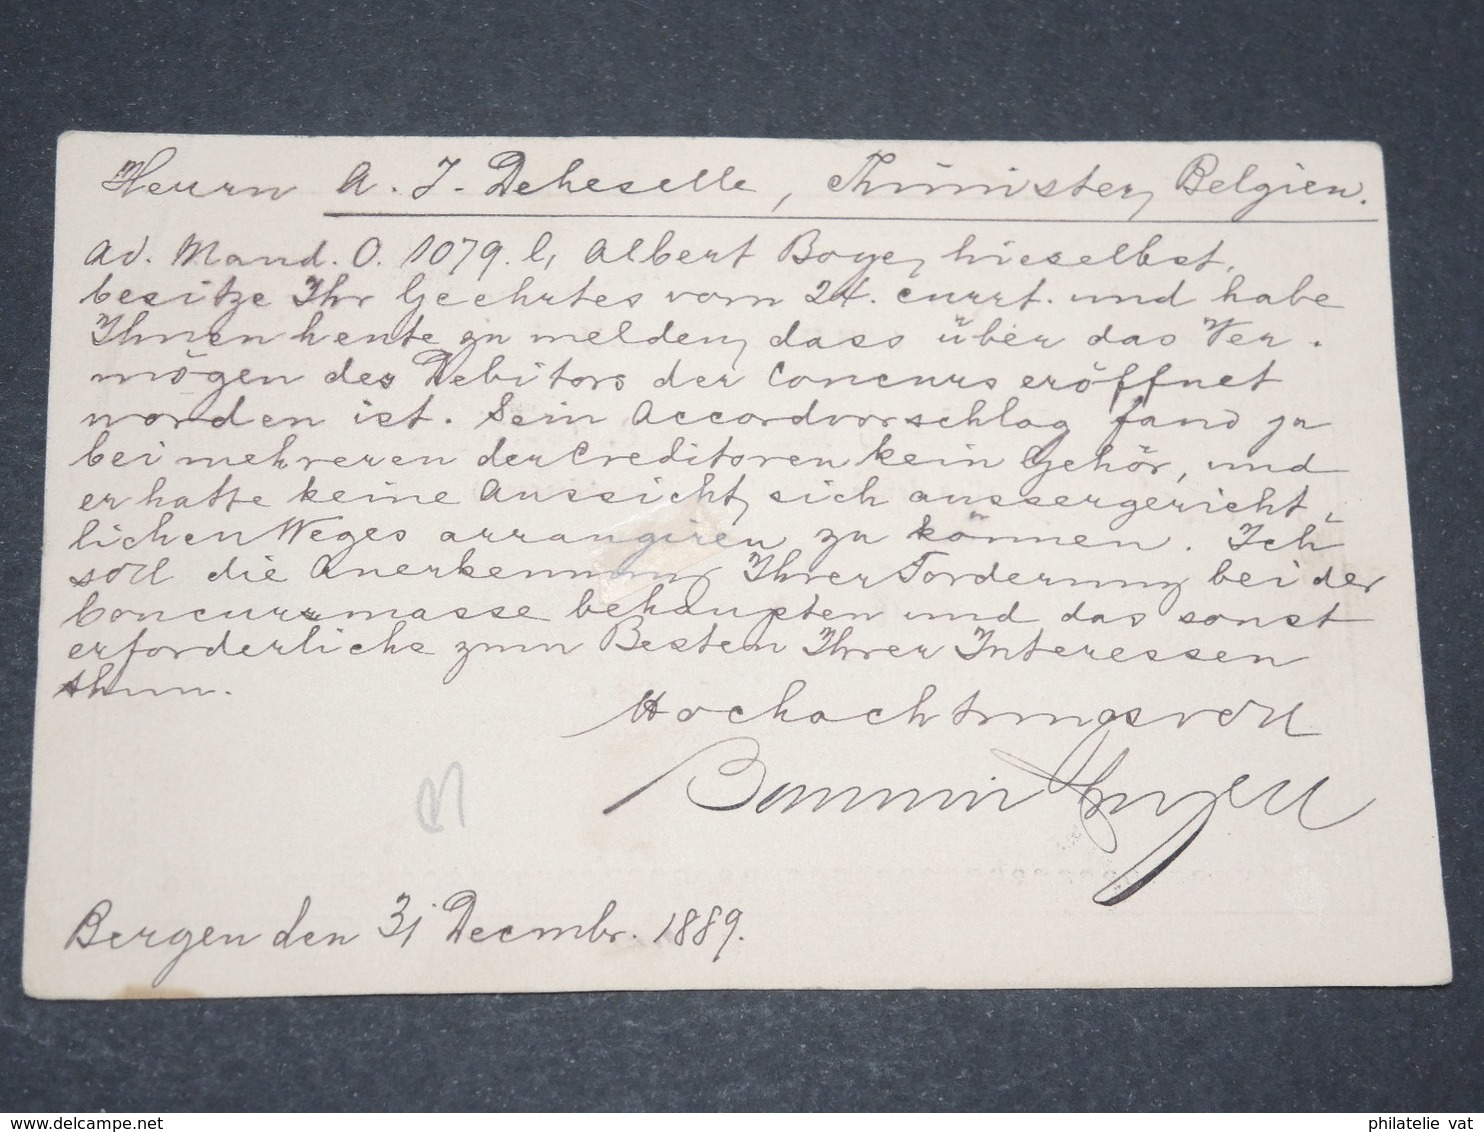 Herrn A. J. Deheselle, Thimister, Belgien.
Ad. Mand. O. 1079. l, Albert Boye, hieselbst,
besitze Ihr Geehrtes vom 24. currt. und habe
Ihnen heute zu melden, dass über das Ver-
mögen des Debitors der Concurs eröffnet
worden ist. Sein Accordvorschlag fand ja
bei mehreren der Creditoren kein Gehör, und
er hatte keine Aussicht, sich aussergericht-
lichen Weges arrangiren zu können. Ich
soll die Anerkennung Ihrer Forderung bei der
Concursmasse behaupten und das sonst
erforderliche zum Besten Ihrer Interessen
thun.
Hochachtungsvoll
Bergen den 31 Decembr. 1889.
delcampe.net
philatelie vat